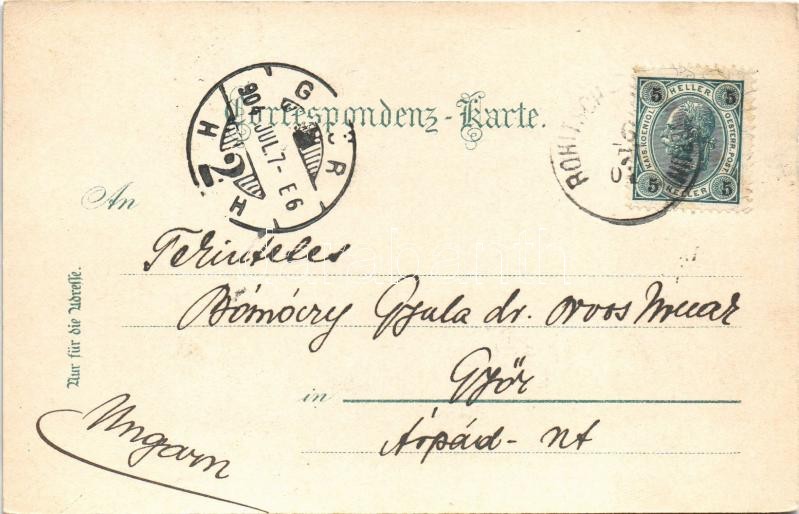 Correspondenz-Karte.
GYŐR
904 JUL. 7 - E6
H 2 H
ROHITSCH
5 HELLER 5
KAIS. KOENIGL. OESTERR. POST.
5 HELLER 5
An
Tekintetes
Bómóczy Gyula dr. orvos
in Győr
Árpád - ut
Ungarn
Nur für die Adresse.